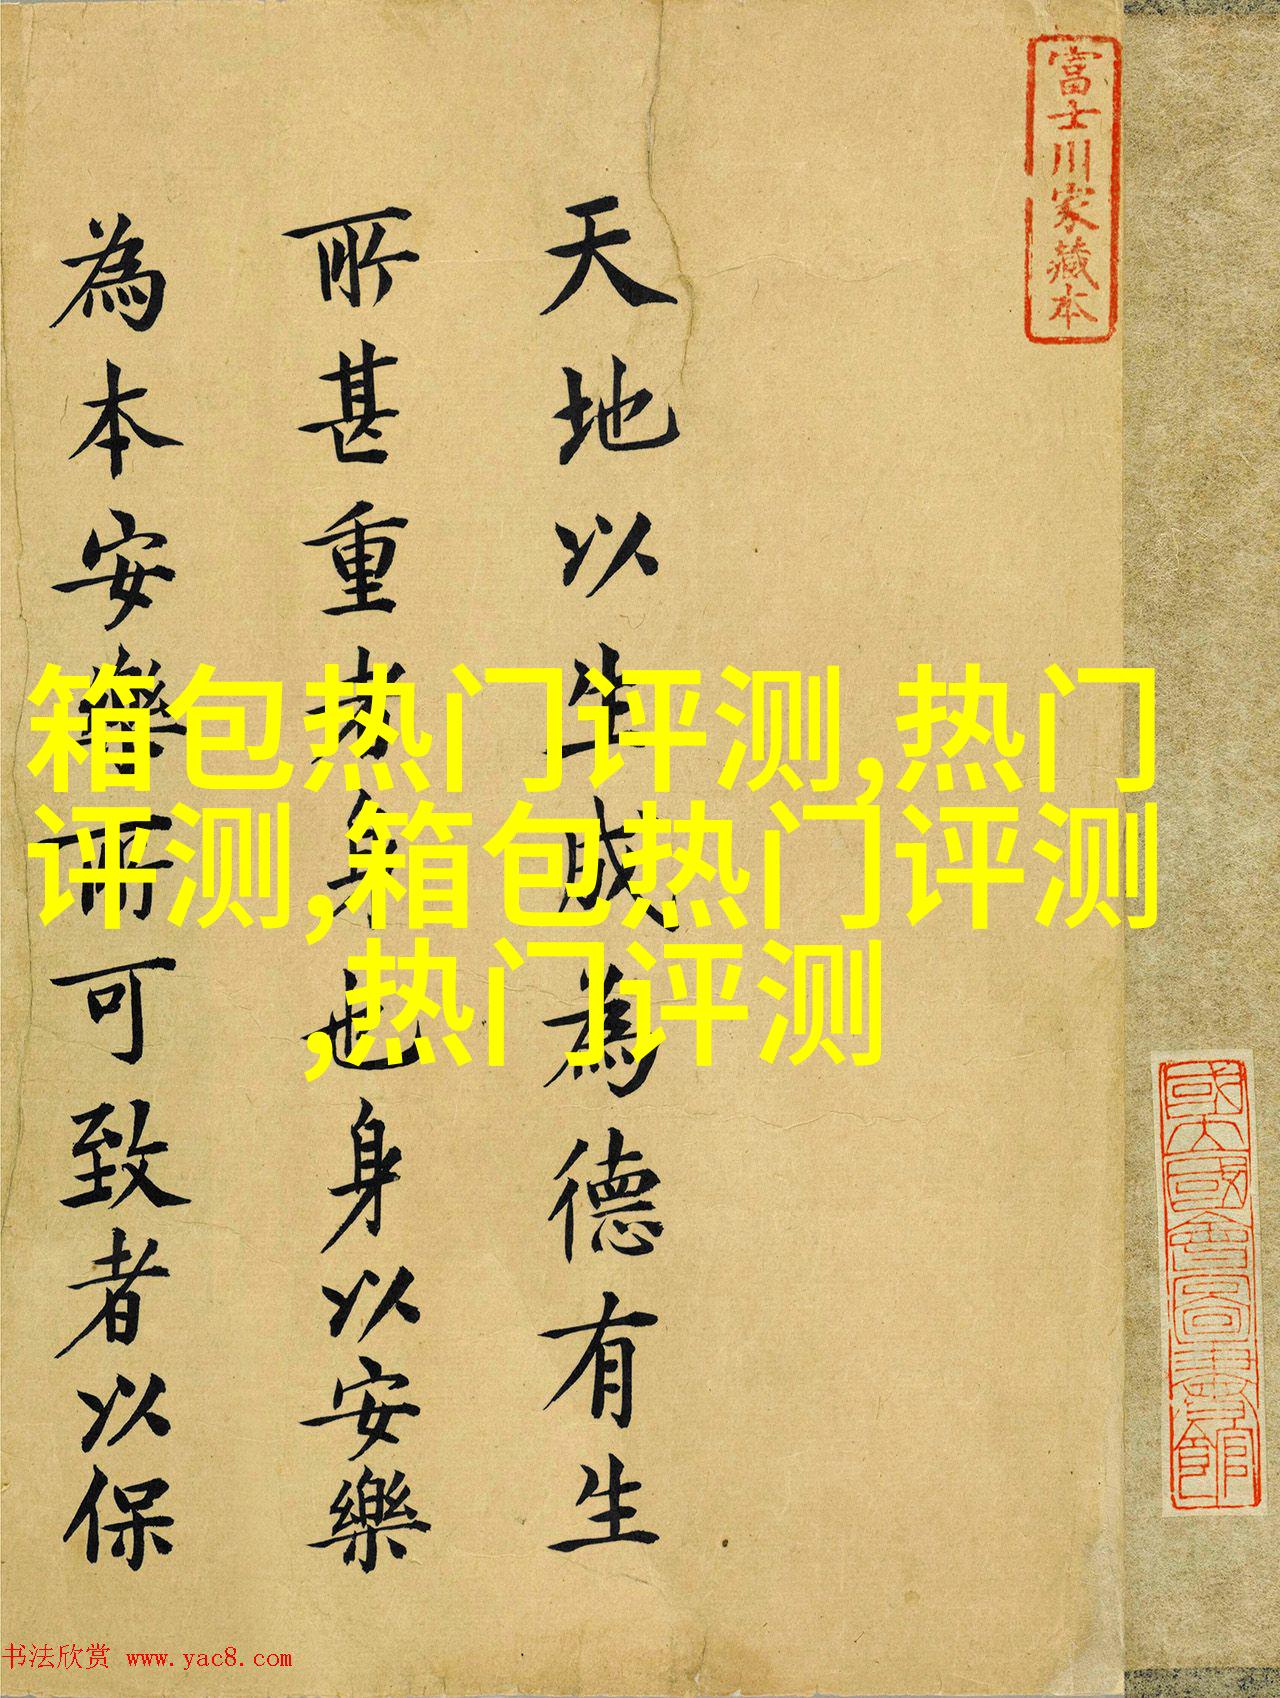 富士川家藏本
天地以生成為德有生
所甚重者身也身以安樂
為本安樂所可致者以保
箱包热门评测,热门
评测,箱包热门评测
,热门评测
书法欣赏 www.yac8.com